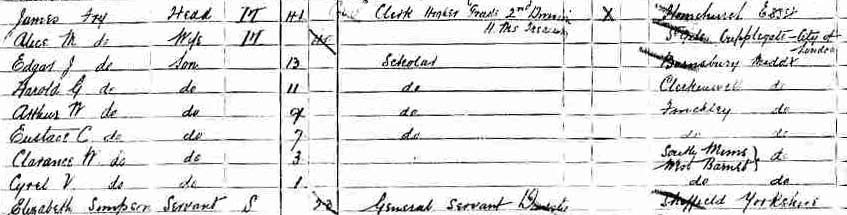 James Fry Head M 41 Clerk Higher Grade 2nd Division H. Ms Treasury X Hornchurch Essex
Alice M do Wife M 40 St Giles Cripplegate City of London
Edgar J do Son 13 Scholar Barnsbury Middx
Harold G do do 11 do Clerkenwell do
Arthur W do do 9 do Finchley do
Eustace C do do 7 do do do
Clarance W do do 3 South Mims Nr Barnet } do
Cyrel V. do do 1 do do
Elizabeth Simpson Servant S 22 General Servant Domestic Sheffield Yorkshire